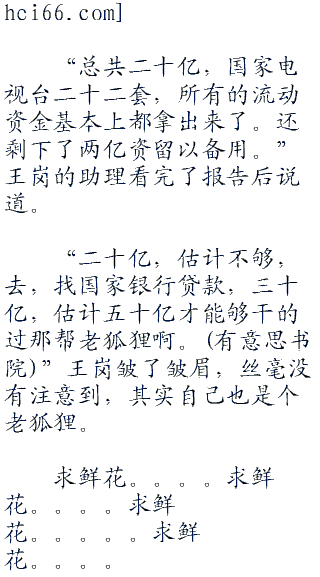 hci66.com]
“总共二十亿，国家电
视台二十二套，所有的流动
资金基本上都拿出来了。还
剩下了两亿资留以备用。”
王岗的助理看完了报告后说
道。
“二十亿，估计不够，
去，找国家银行贷款，三十
亿，估计五十亿才能够干的
过那帮老狐狸啊。(有意思书
院)”王岗皱了皱眉，丝毫没
有注意到，其实自己也是个
老狐狸。
求鲜花。。。。求鲜
花。。。。求鲜
花。。。。。求鲜
花。。。。